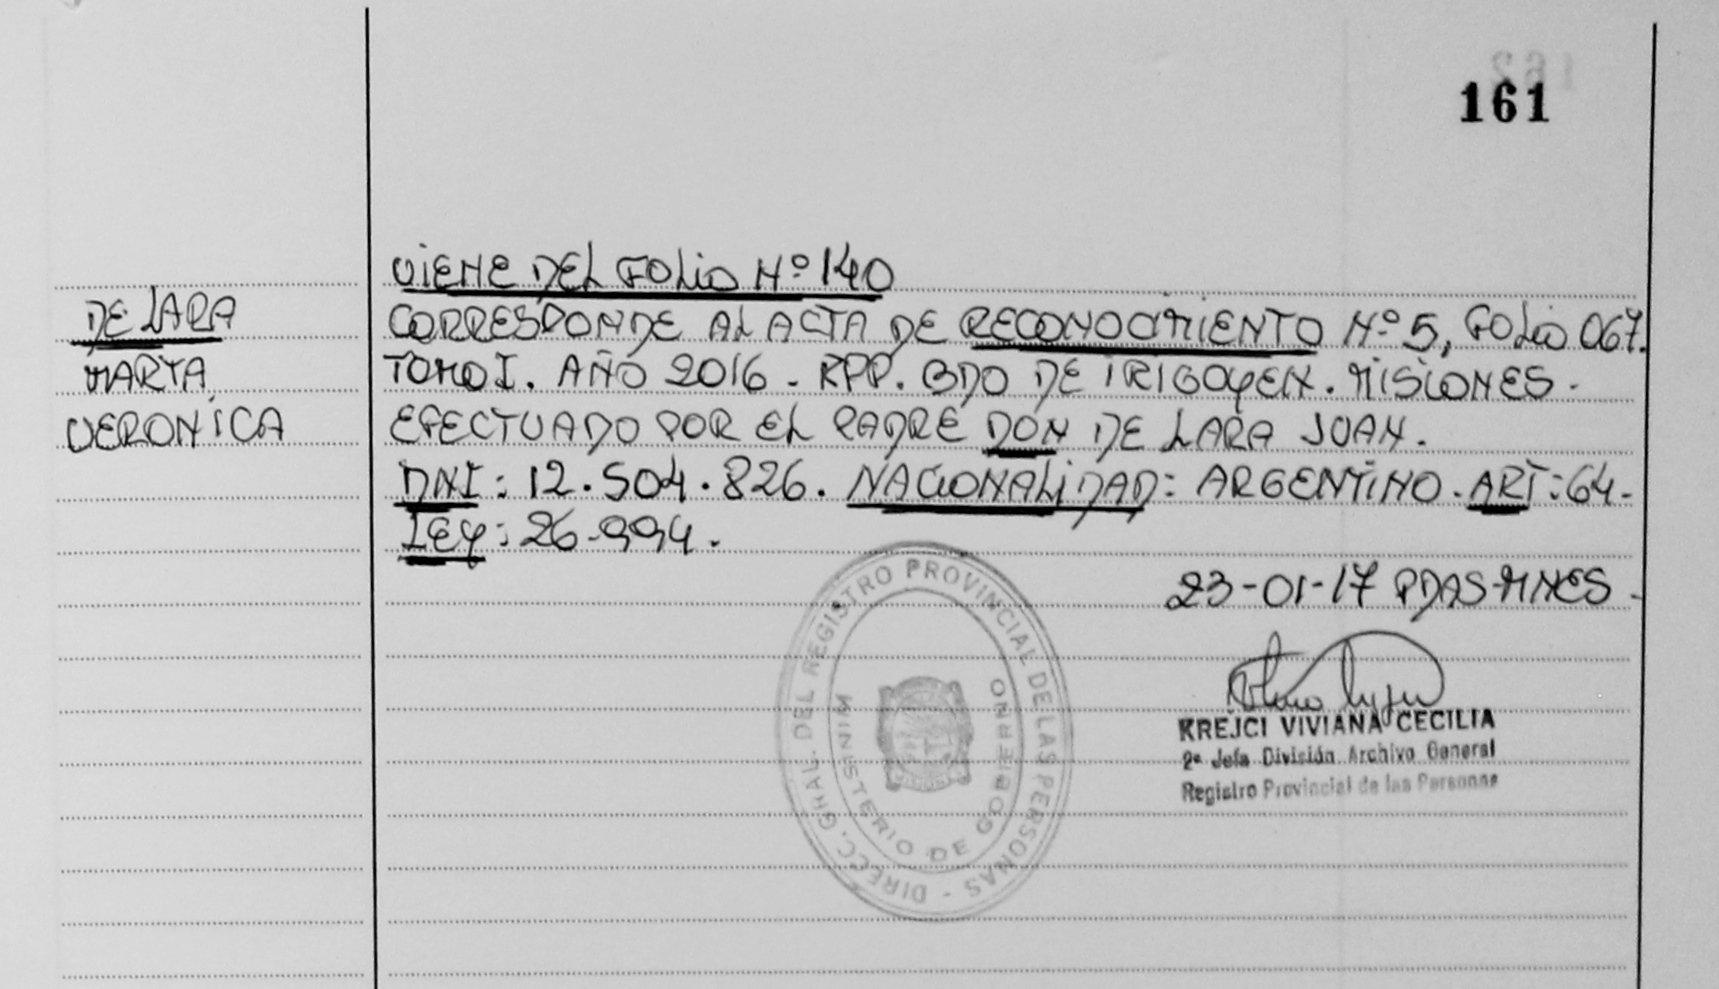 161
VIENE DEL FOLIO Nº 140
DE LARA
MARTA
VERONICA
CORRESPONDE AL ACTA DE RECONOCIMIENTO Nº 5, FOLIO 067.
TOMO I. AÑO 2016 - RPP. BDO DE IRIGOYEN. MISIONES.
EFECTUADO POR EL PADRE DON DE LARA JUAN.
DNI: 12.504.826. NACIONALIDAD: ARGENTINO. ART: 64-
LEY: 26.994.
23-01-17 PDAS-MNES-
KREJCI VIVIANA CECILIA
2ª Jefa División Archivo General
Registro Provincial de las Personas
DIRECC. GRAL. DEL REGISTRO PROVINCIAL DE LAS PERSONAS -
MINISTERIO DE GOBIERNO